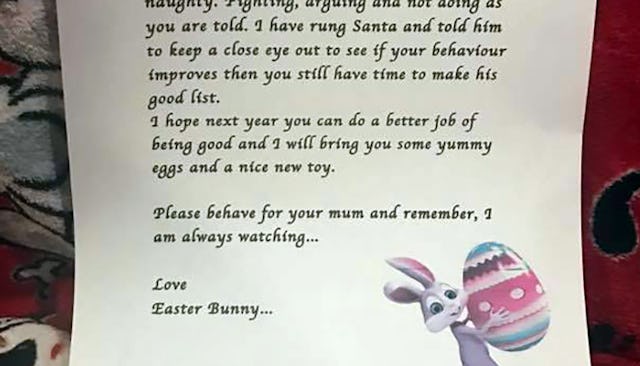 naughty. Fighting, arguing and not doing as
you are told. I have rung Santa and told him
to keep a close eye out to see if your behaviour
improves then you still have time to make his
good list.
I hope next year you can do a better job of
being good and I will bring you some yummy
eggs and a nice new toy.
Please behave for your mum and remember, I
am always watching...
Love
Easter Bunny...